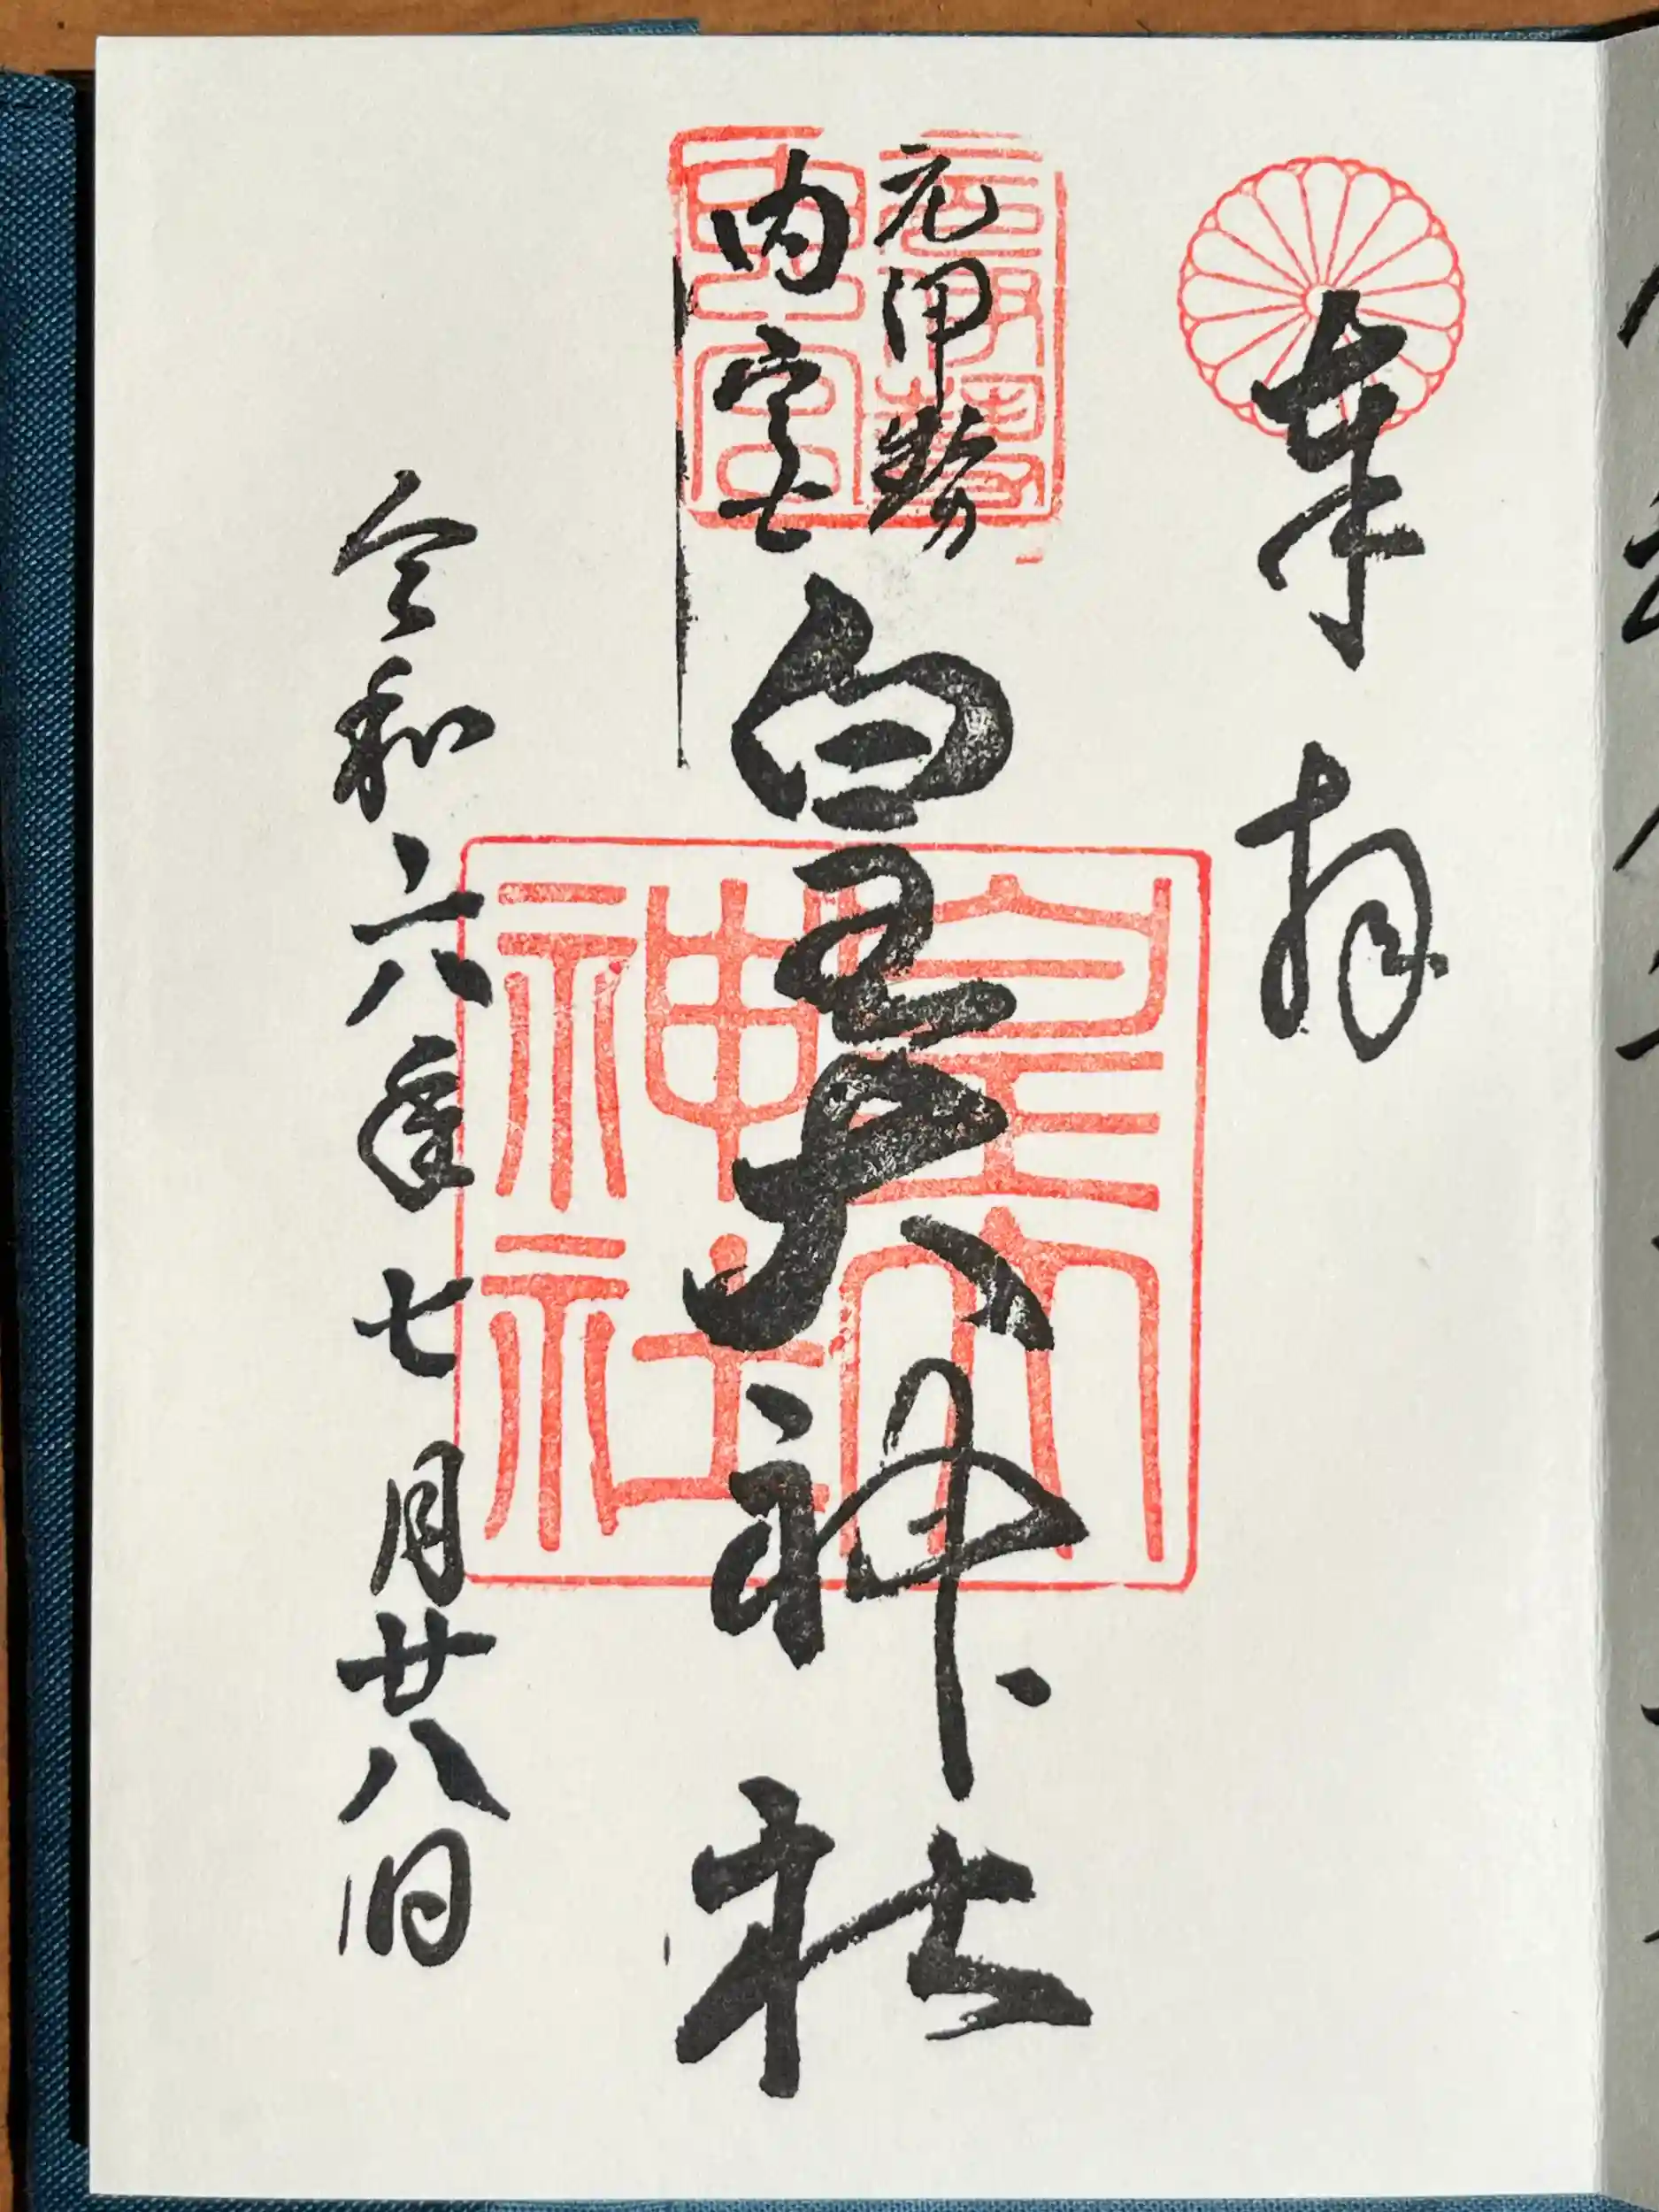 奉拝
元伊勢
内宮
皇大神社
令和六年七月廿八日
元伊勢内宮
皇大神社